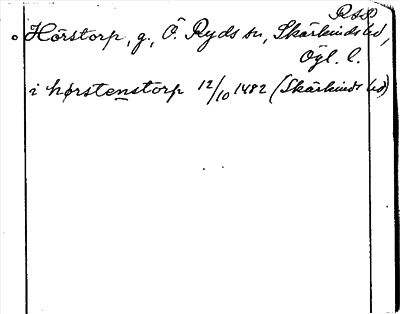 RSP
Hörstorp, g., Ö. Ryds sn, Skärkinds hd,
Ögl. l.
i hørstenstorp 12/10 1482 (Skärkinds hd)